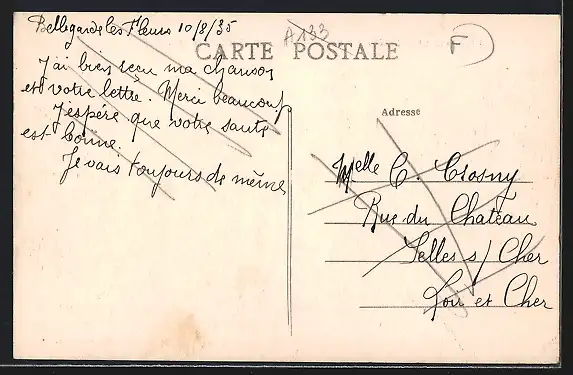 Bellegarde les Fleurs 10/8/35
A133
F
CARTE POSTALE
J'ai bien recu ma chanson
et votre lettre. Merci beaucoup
J'espère que votre santé
est bonne.
Je vais toujours de même
Adresse
Melle C. Crosny
Rue du Chateau
Selles s/ Cher
Loir et Cher